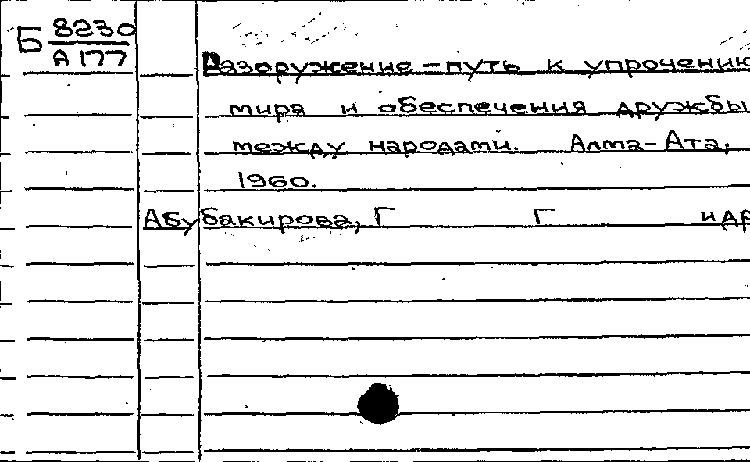 Б 8230
А 177
Разоружение – путь к упрочению
мира и обеспечения дружбы
между народами. Алма-Ата,
1960.
Абубакирова, Г Г и др